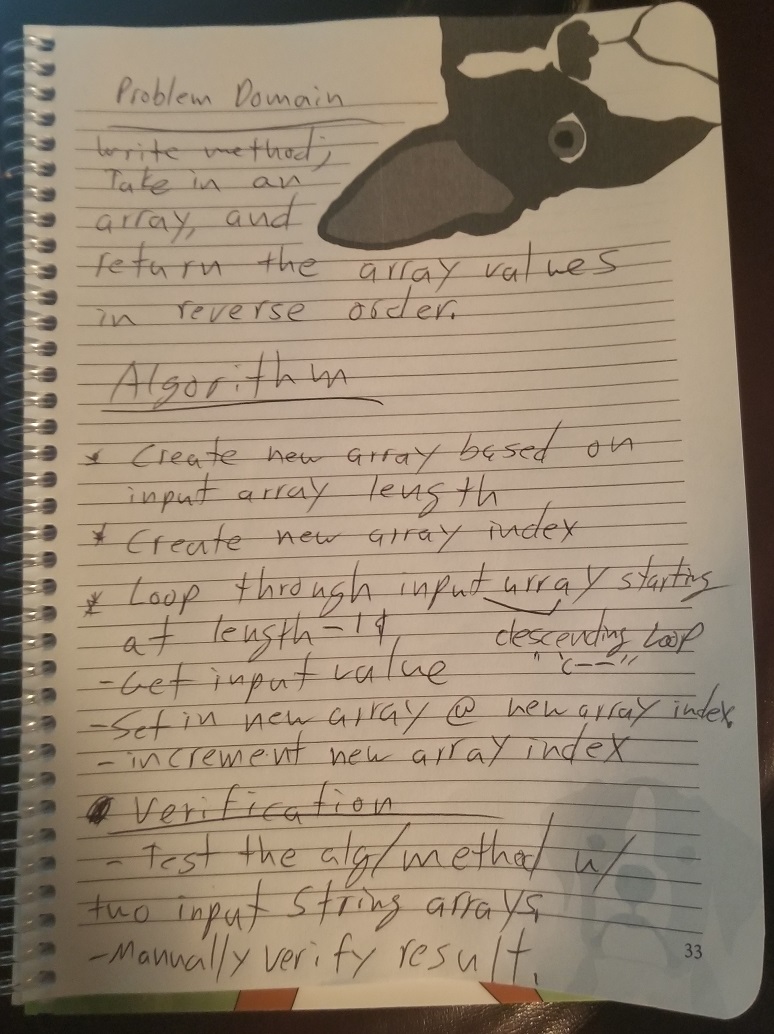 Problem Domain
Write method;
Take in an
array, and
return the array values
in reverse order.
Algorithm
* Create new array based on
input array length
* Create new array index
* Loop through input array starting
at length-1
descending loop
"i--"
- Get input value
- Set in new array @ new array index.
- increment new array index
Verification
- Test the alg/method w/
two input String arrays.
- Manually verify result.
33